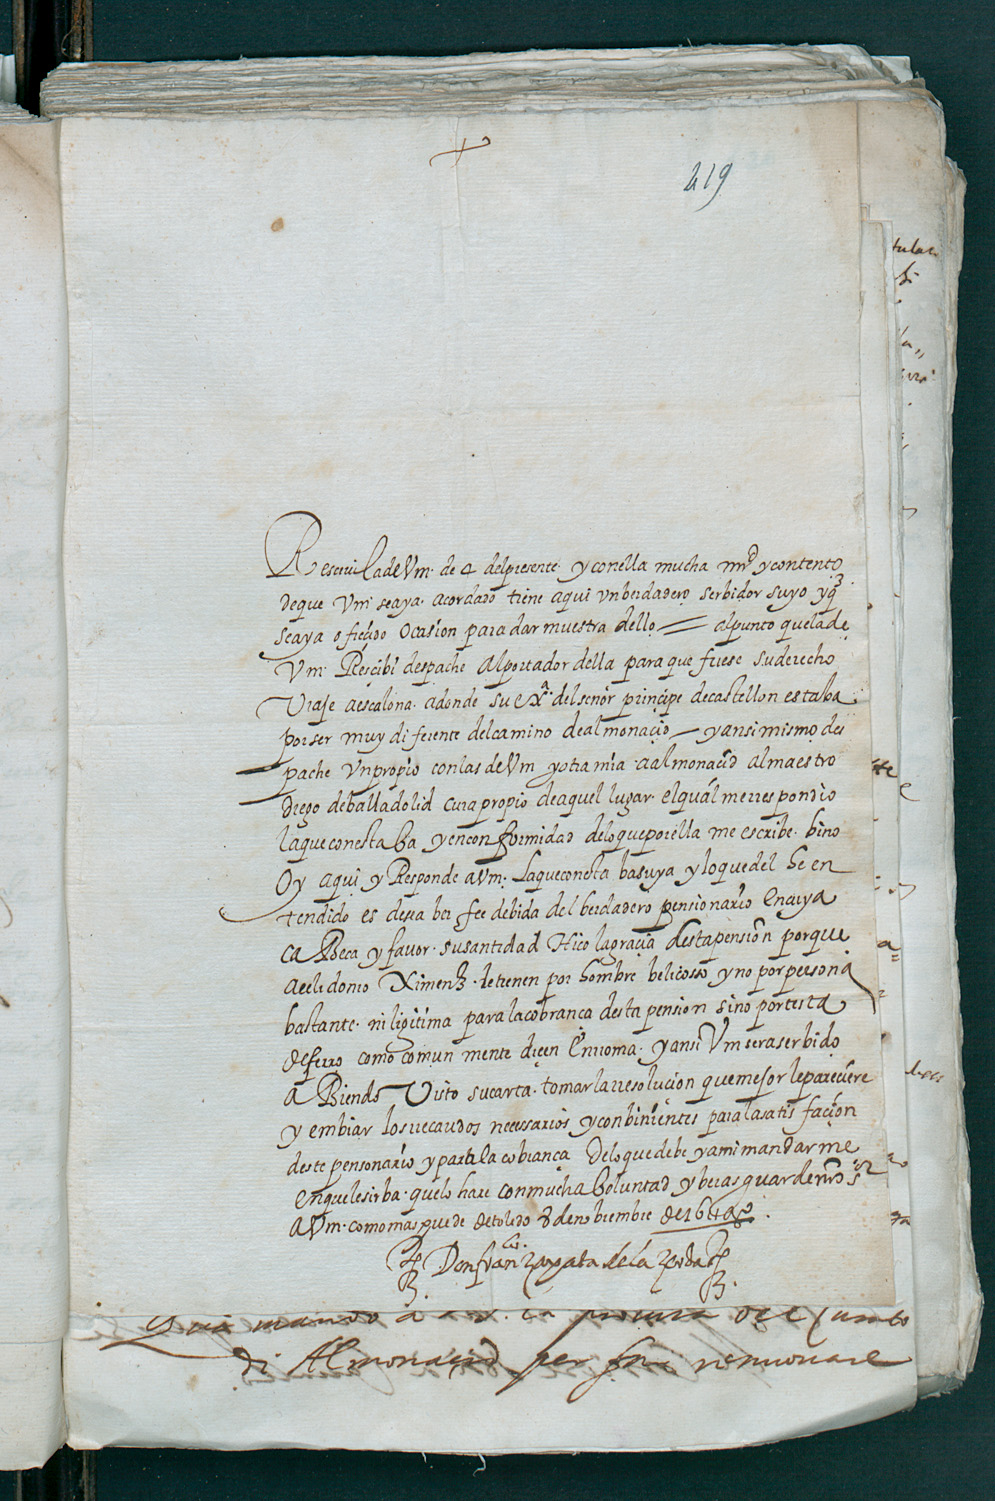 219
Resceui la de Vm. de 4 del presente y con ella mucha mrd y contento
de que Vm. se aya acordado tiene aqui un berdadero serbidor suyo y q
se aya ofreçido ocasion para dar muestra dello = al punto que la de
Vm. Resçibi despache al portador della para que fuese su derecho
Viaje a escalona adonde su exa. del señor prinçipe de castellon estaba
por ser muy diferente del camino de almonaçio – y ansi mismo des
pache Un propio con las de Vm y otra mia a almonacid al maestro
Diego de balladolid cura propio de aquel lugar el qual me rrespondio
la que con esta ba y en conformidad de lo que por ella me escribe bino
Oy aqui y Responde a Vm. La que con esta ba suya y lo que del he en
tendido es desea ber fee debida del berdadero pensionario En cuya
caBeca y favor su santidad Hico la graçia desta pension porque
a celedonio Ximenez le tienen por hombre belicosso y no por persona
bastante ni ligitima para la cobranca desta pension sino por testa
de ferro como comun mente diçen En rroma y ansi Vm sera serbido
aBiendo Visto su carta tomar la rresoluçion que mejor le pareçiere
y embiar los rrecaudos necessarios y conbinientes para la satisfaçion
deste pensonario y para la cobrança De lo que debe y a mi mandarme
En que le sirba que lo hare con mucha boluntad y beras guarde nro sor
a Vm. como mas puede de toledo 8 de nobiembre de
Don franco Zapata de la Zerda
mando a
di Almonacid per